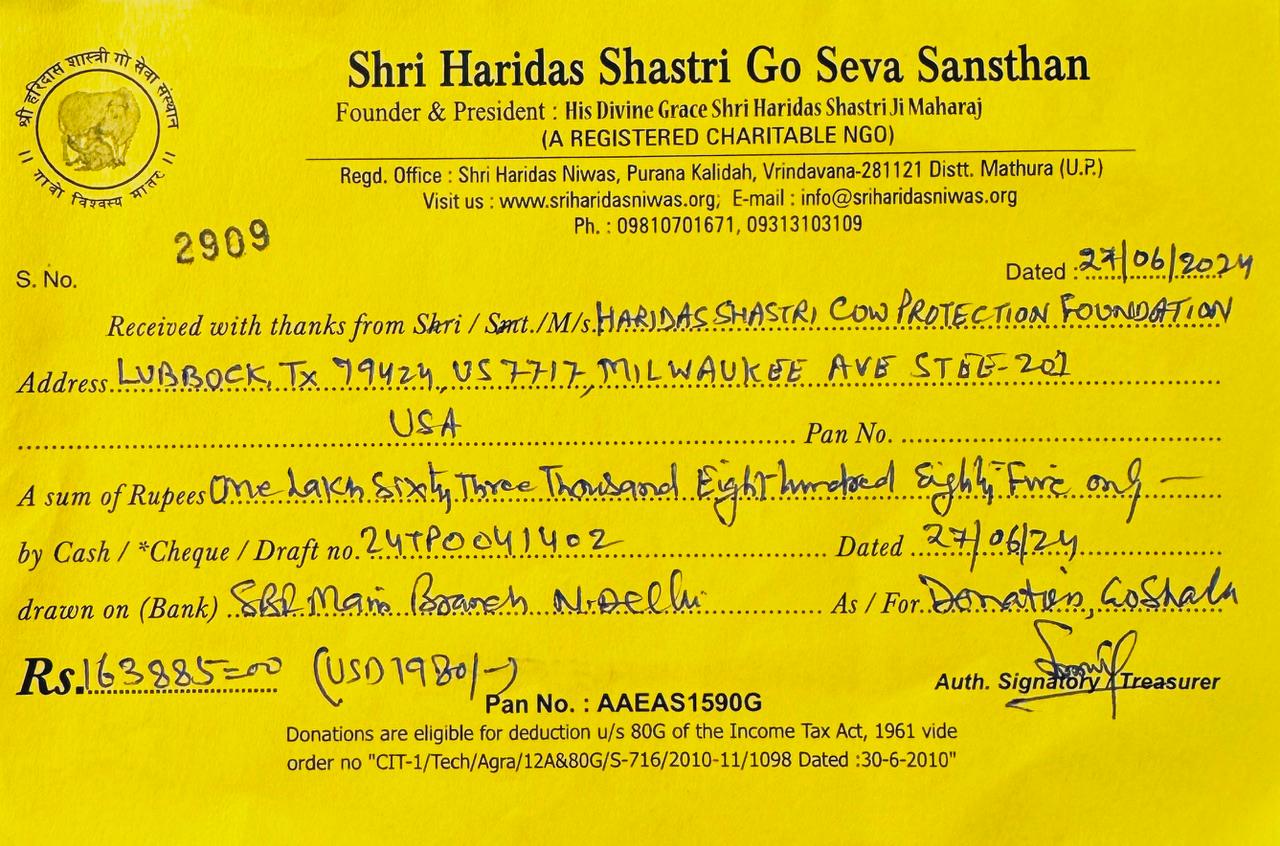 श्री हरिदास शास्त्री गो सेवा संस्थान
॥ गावो विश्वस्य मातरः ॥
Shri Haridas Shastri Go Seva Sansthan
Founder & President : His Divine Grace Shri Haridas Shastri Ji Maharaj
(A REGISTERED CHARITABLE NGO)
Regd. Office : Shri Haridas Niwas, Purana Kalidah, Vrindavana-281121 Distt. Mathura (U.P.)
Visit us : www.sriharidasniwas.org; E-mail : info@sriharidasniwas.org
Ph. : 09810701671, 09313103109
S. No. 2909
Dated : 27/06/2024
Received with thanks from Shri / Smt./M/s. HARIDAS SHASTRI COW PROTECTION FOUNDATION
Address LUBBOCK, TX 79424, US 7717, MILWAUKEE AVE STEE-201
USA Pan No.
A sum of Rupees One Lakh Sixty Three Thousand Eight hundred Eighty Five only —
by Cash / *Cheque / Draft no. 24TP0041402 Dated 27/06/24
drawn on (Bank) SBI Main Branch N.Delhi As / For Donation, GoShala
Rs. 163885=00 (USD 1980/-)
Auth. Signatory / Treasurer
Pan No. : AAEAS1590G
Donations are eligible for deduction u/s 80G of the Income Tax Act, 1961 vide
order no "CIT-1/Tech/Agra/12A&80G/S-716/2010-11/1098 Dated :30-6-2010"